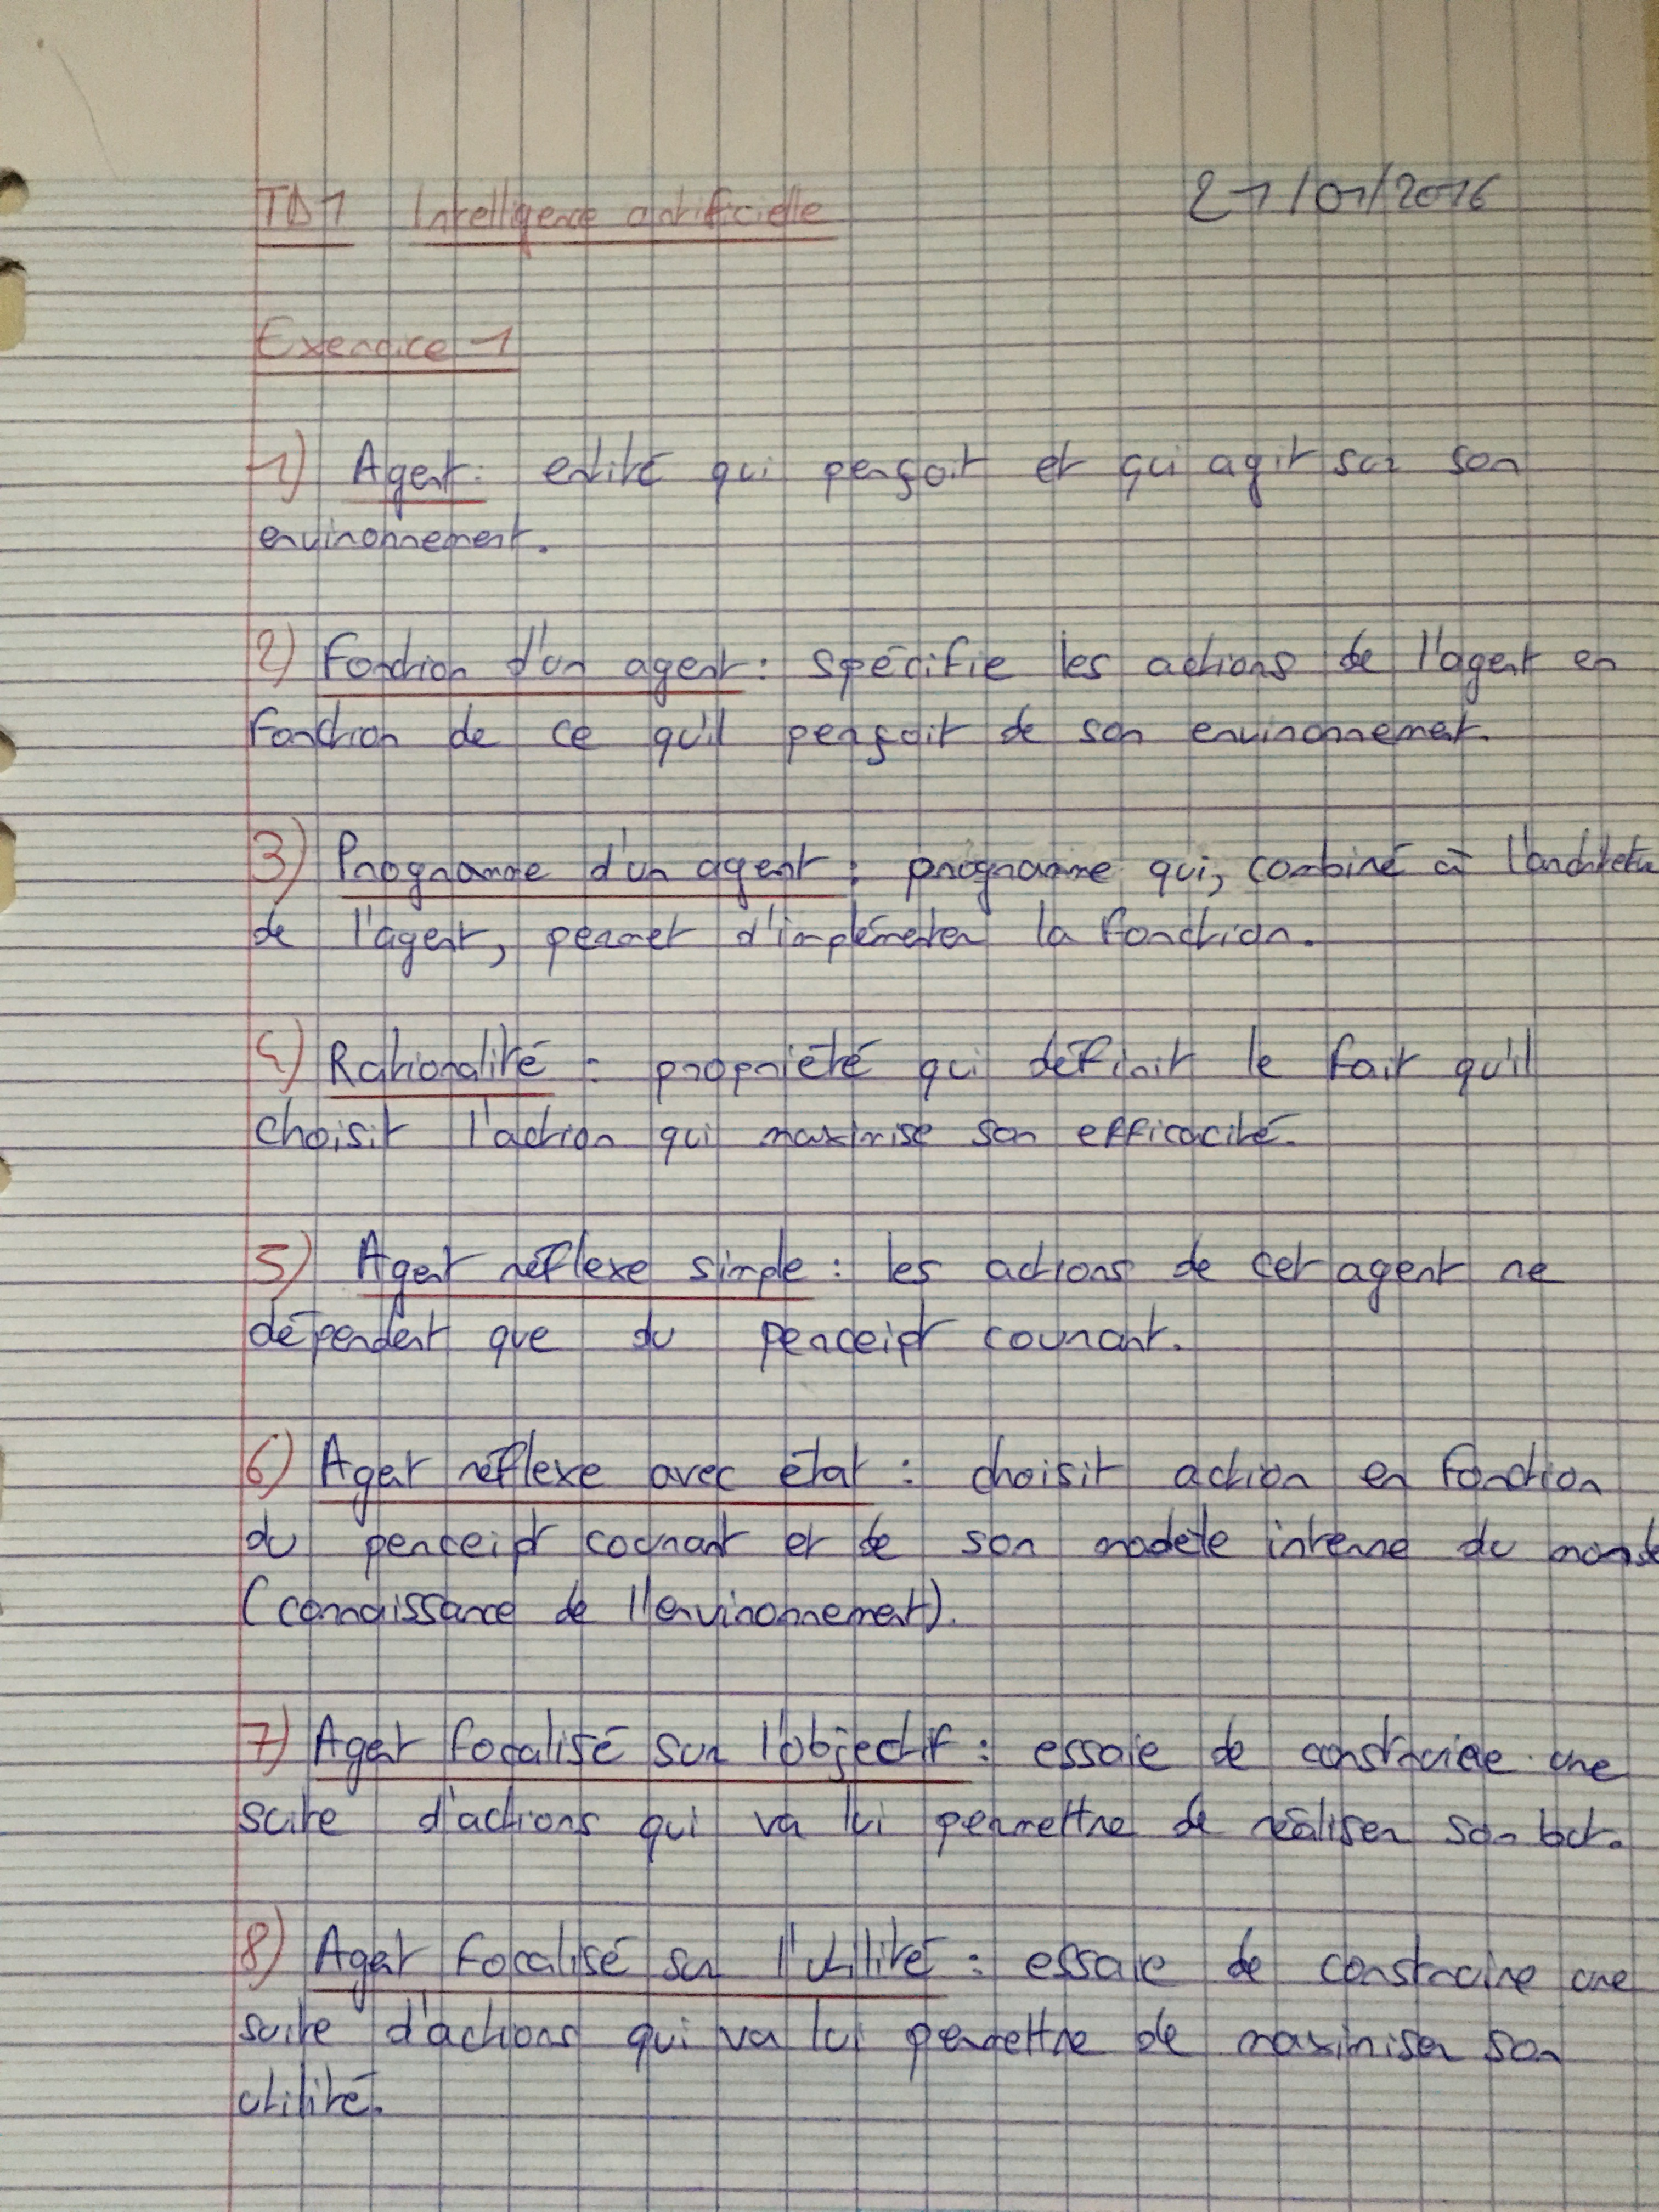 TD1 Intelligence artificielle 21/01/2016
Exercice 1
1) Agent : entité qui perçoit et qui agit sur son
environnement.
2) Fonction d'un agent : spécifie les actions de l'agent en
fonction de ce qu'il perçoit de son environnement.
3) Programme d'un agent : programme qui, combiné à l'architectu
de l'agent, permet d'implémenter la fonction.
4) Rationalité : propriété qui définit le fait qu'il
choisit l'action qui maximise son efficacité.
5) Agent réflexe simple : les actions de cet agent ne
dépendent que du perceipt courant.
6) Agent réflexe avec état : choisit action en fonction
du perceipt courant et de son modèle interne du monde
(connaissance de l'environnement).
7) Agent focalisé sur l'objectif : essaie de construire une
suite d'actions qui va lui permettre de réaliser son but.
8) Agent focalisé sur l'utilité : essaie de construire une
suite d'actions qui va lui permettre de maximiser son
utilité.